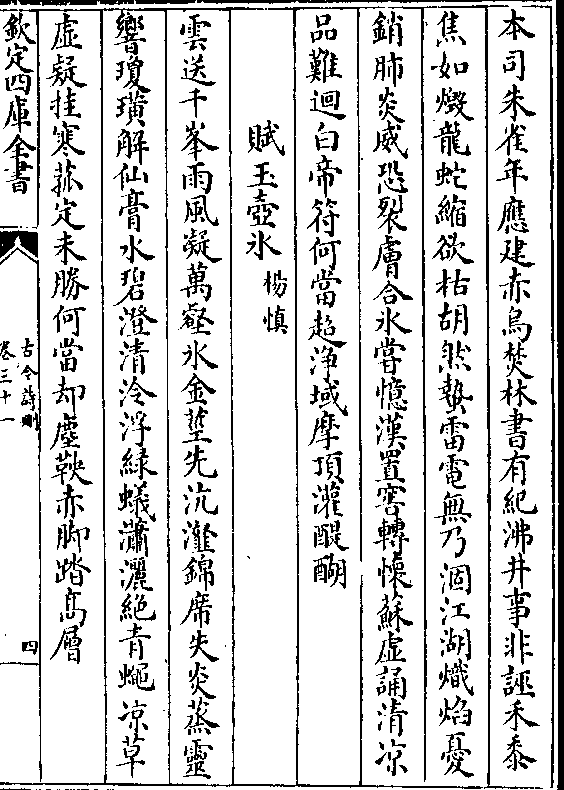 本司朱雀年應建赤烏焚林書有紀沸井事非誣禾黍
焦如燬龍蛇縮欲枯胡然蟄雷電無乃涸江湖熾焰憂
銷肺炎威恐裂膚合氷嘗憶漢置窖轉懐蘇虚誦清凉
品難迴白帝符何當超浄域摩頂灌醍醐
賦玉壺氷 楊慎
雲送千峯雨風凝萬壑氷金莖先沆瀣錦席失炎蒸靈
響瓊璜解仙膏水碧澄清泠浮緑蟻瀟灑絶青蠅凉草
虚疑挂寒菰定未勝何當却塵鞅赤脚踏髙層
欽定四庫全書
古今詩刪
卷三十一
四